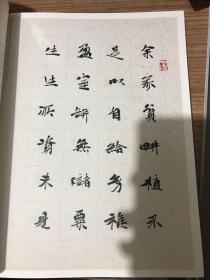 余家貧畊植不
足以自給幼稚
盈室缾無儲粟
生生所資未見